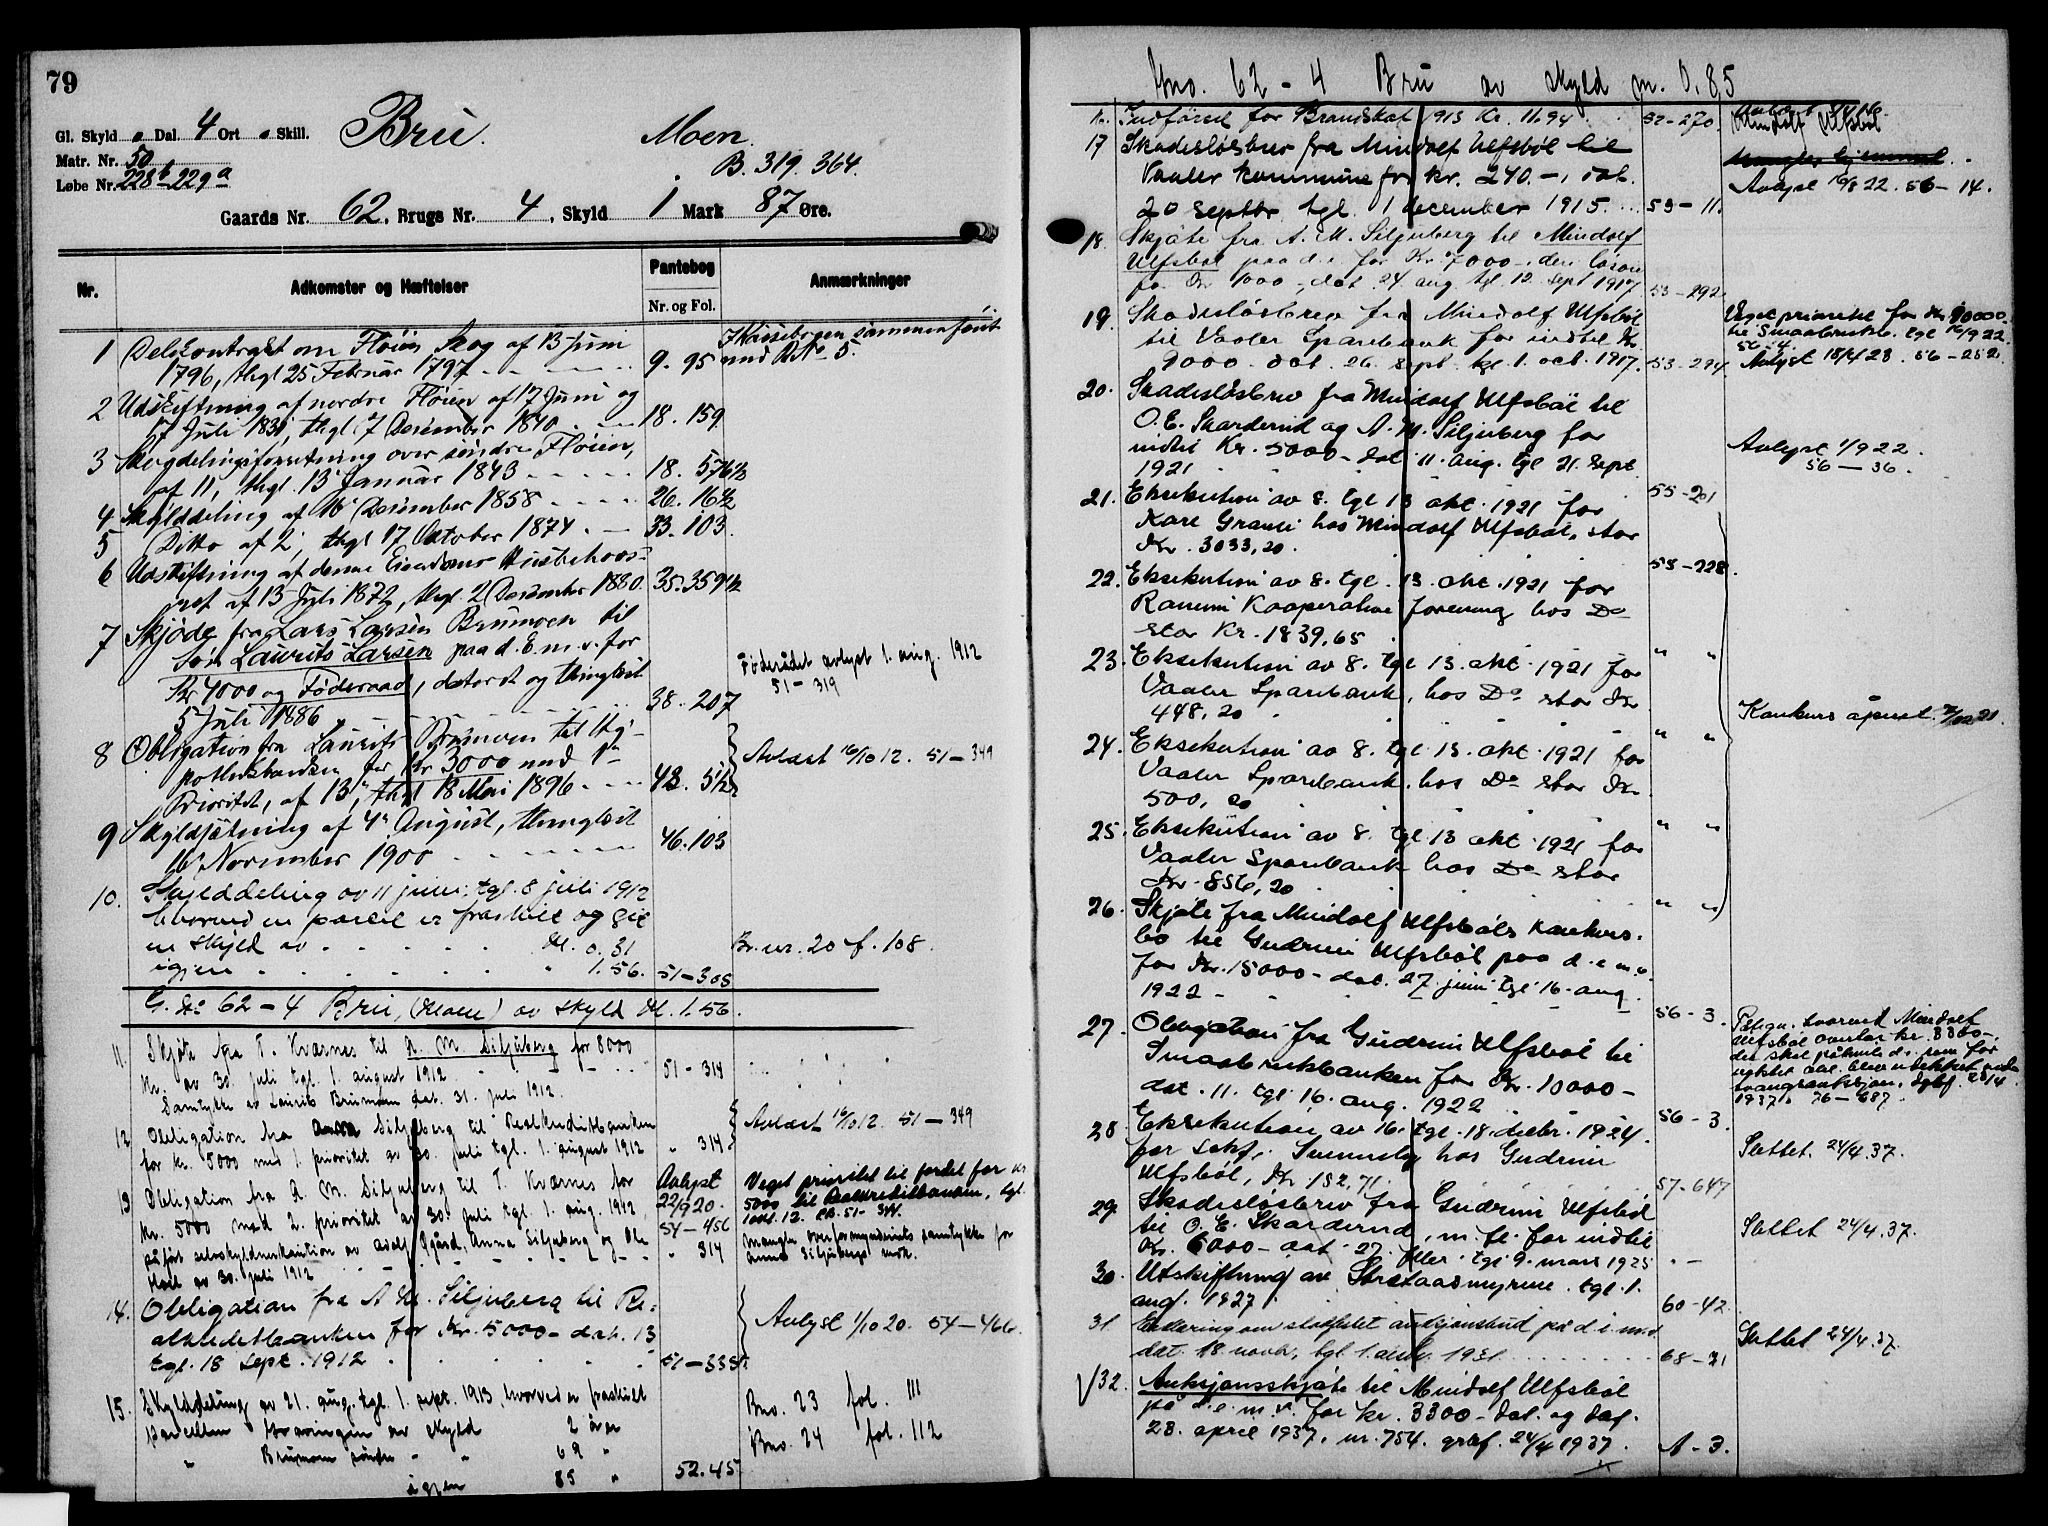 79
Gl. Skyld " Dal. 4 Ort " Skill.
Bru.
Moen.
Matr. Nr. 50
B. 319. 364.
Løbe Nr. 228b - 229a
Gaards Nr. 62, Brugs Nr. 4, Skyld 1 Mark 87 Øre.
Nr.
Adkomster og Hæftelser
Pantebog
Nr. og Fol.
Anmærkninger
1 Delekontrakt om Fløien Skog af 13 Juni
1796, thgl 25 Februar 1797 9. 95 med B No. 5.
2 Udskiftning af nordre Fløien af 17 Juni og
17 Juli 1839, thgl 7 December 1840 18. 159
3 Skogdelingsforretning over søndre Fløien,
af 11, thgl. 13 Januar 1843 18. 576½
4 Skylddeling af 16 December 1858 26. 16½
5 Ditto af 2, thgl 17 Oktober 1874 33. 103.
6 Udskiftning af denne Eiendoms
af 13 Juli 1872, thgl. 2 December 1880. 35. 359½
7 Skjøde fra Lars Larsen Brumoen til
Søn Laurits Larsen paa d. E. m. v. for
Kr 4000 og Føderaad, dateret og thinglæst
5 Juli 1886 38. 207
Føderådet avlyst 1. aug. 1912
51-319
8 Obligation fra Laurits Brumoen til Hy-
pothekbanken for Kr 3000 med 1ste
Prioritet, af 13, thgl 18 Mai 1896
Avlæst 16/10 12. 51-349
9 Skyldsætning af 4de August, thinglæst
16 November 1900 46. 103
10. Skylddeling av 11 juni, tgl. 8 juli 1912
hvorved en parcel er fraskilt og git
en skyld av M. 0,31
Br. nr. 20 f. 108.
igjen " 1.56. 51-305
G. No 62-4 Bru, (Moen) av skyld M. 1.56.
11. Skjøte fra T. Kværnes til A. M. Siljuberg for 8000
Kr. av 30. juli tgl. 1. august 1912. 51-314
Samtykke av Laurits Brumoen dat. 31. juli 1912.
12. Obligation fra Siljuberg til Realkreditbanken
for kr. 5000 med 1. prioritet av 30. juli tgl. 1. august 1912 " 314
Avlæst 16/10 12. 51-349
13. Obligation fra A. M. Siljuberg til T. Kværnes for
kr. 5000 med 2. prioritet av 30. juli tgl. 1. aug. 1912,
påført selvskyldnerkaution av Adolf Ogård, Anna Siljuberg og Ole
av 30. juli 1912
Avlyst
22/9 20.
54-456
" 314
Veget prioritet til fordel for kr
5000 til Realkreditbanken, tgl.
mangler overformynderiets samtykke for
Anna Siljubergs vedk.
14. Obligation fra A. M. Siljuberg til Re-
alkreditbanken for Kr. 5000- dat. 13
tgl. 18 Sept. 1912 51-335
Avlyst 1/10 20. 54-466.
15. Skylddeling av 21. aug. tgl. 1. sept. 1913, hvorved er fraskilt
parcellen av skyld 2 øre Bno. 23 fol. 111
" Brumoen søndre " " 69 " Bno. 24 fol. 112
igjen 85 " 52.45
Gno. 62-4 Bru av skyld m. 0,85
Indførsel for Brandskat 1913 Kr. 11.94 52-270.
17 Skadesløsbrev fra Mindolf Ulfsbøl til
Vaaler kommune for kr. 240.-, dat.
20 septbr. tgl. 1 december 1915. 53-11.
Avlyst 16/8 22. 56-14.
18. Skjøte fra A. M. Siljuberg til Mindolf
Ulfsbøl paa d. e. for Kr. 7000-, derav løsøre
for Kr 1000-, dat. 24 aug. tgl. 12. sept 1917. 53-292
19. Skadesløsbrev fra Mindolf Ulfsbøl
til Vaaler Sparebank for indtil Kr.
9000. dat. 26. sept. tgl. 1. oct. 1917. 53-294
Veget prioritet for Kr 10000-
til Smaabrukb. tgl 16/9 22.
56-4.
Avlyst 15/2 23. 56-252.
20. Skadesløsbrev fra Mindolf Ulfsbøl til
O. E. Skarderud og A. M. Siljuberg for
indtil Kr. 5000- dat 11. aug. tgl 21. sept
1921 55-201
Avlyst 1/9 22.
56-36.
21. Eksekution av 8. tgl 13 okt. 1921 for
Kåre Granli hos Mindolf Ulfsbøl, stor
Kr. 3033,20. 55-228.
22. Eksekution av 8. tgl. 13. okt. 1921 for
Kooperative forening hos Do
stor Kr. 1839,65. " "
23. Eksekution av 8. tgl 13. okt. 1921 for
Vaaler Sparebank, hos Do stor Kr
448,20 " "
Konkurs åpnet
24. Eksekution av 8. tgl. 13. okt. 1921 for
Vaaler Sparebank, hos Do stor Kr
500,20 " "
25. Eksekution av 8. tgl 13 okt 1921 for
Vaaler Sparebank hos Do stor
Kr. 856,20 " "
26. Skjøte fra Mindolf Ulfsbøls konkurs-
bo til Gudrun Ulfsbøl paa d. e. m. v.
for Kr. 15000- dat. 27. juni tgl 16. aug.
1922 56-3.
27. Obligation fra Gudrun Ulfsbøl til
Smaabrukbanken for Kr. 10000-
dat. 11. tgl. 16. aug. 1922 56-3.
Påtegn. hvorved Mindolf
Ulfsbøl overtar kr. 3300-,
der skal påhvile d. e. som før
rykket
tvangsauksjon, dgbf. 23/4
1937. 76-687.
28. Eksekution av 16. tgl. 18. decbr. 1924.
for sakf. hos Gudrun
Ulfsbøl, Kr 152,71. 57-647
Slettet 24/4.37.
29. Skadesløsbrev fra Gudrun Ulfsbøl
til O. E. Skarderud, m. fl. for indtil
Kr. 6000- dat 27. tgl 9. mars 1925
Slettet 24/4.37.
30. Utskiftning av tgl. 1.
aug. 1927. 60-42.
31 Erklæring om stadfestet auksjonsbud på d. e. m. v.
dat. 18. novbr. tgl. 1. desbr. 1931 68-31
Slettet 24/4.37.
32. Auksjonsskjøte til Mindolf Ulfsbøl
på d. e. m. v. for kr. 3300- dat. og dgf.
23. april 1937. nr. 754. grbf. 24/4 1937. A-3.